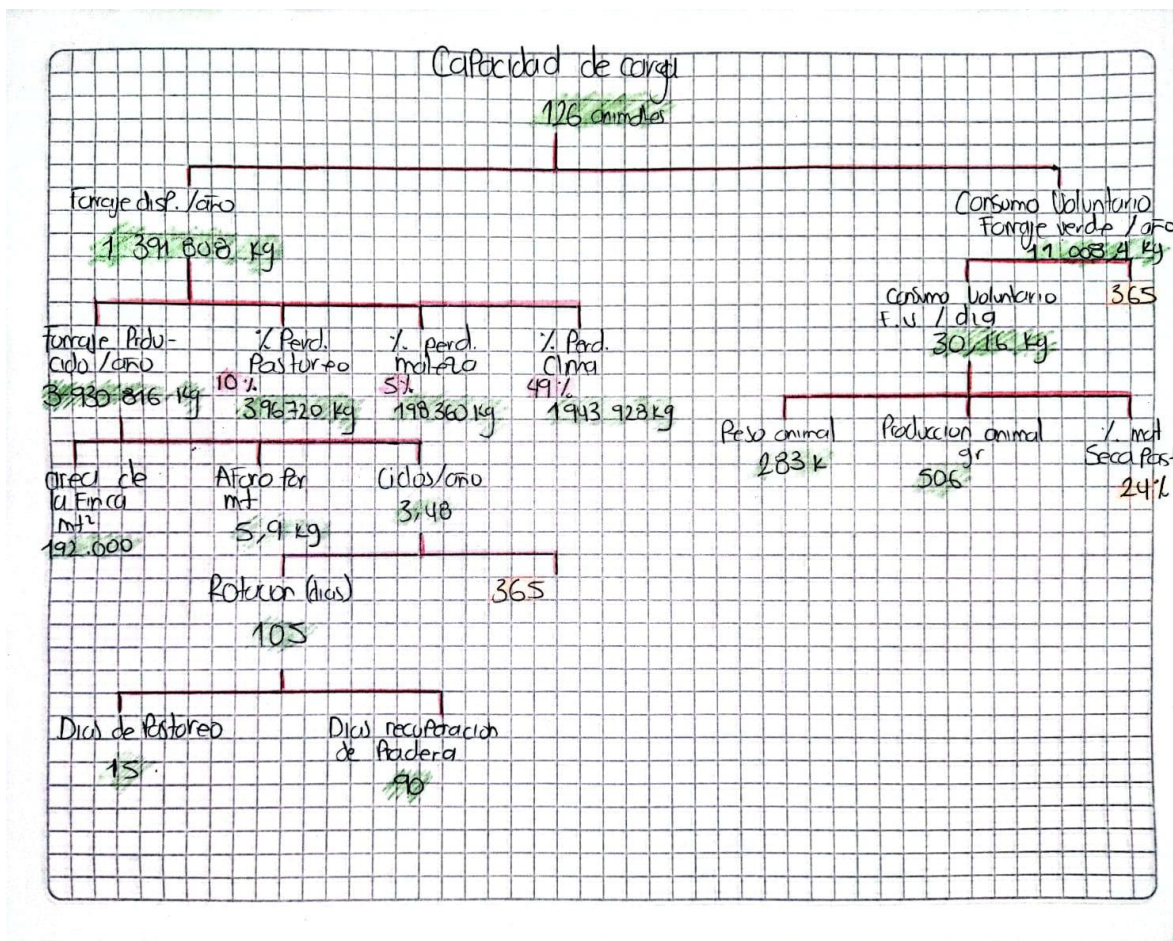 Capacidad de carga
126 animales
Forraje disp. /año
1 391 808 kg
Consumo Voluntario
Forraje verde / año
11 008,4 kg
Forraje Produ-
cido /año
3 930 816 kg
% Perd.
Pastoreo
10%
396720 kg
% perd.
maleza
5%
198360 kg
% Perd.
Clima
49%
1943 928 kg
Consumo Voluntario
F.V / dia
30,16 kg
365
area de
la Finca
mt²
192.000
Aforo Por
mt
5,9 kg
Ciclos/año
3,48
Peso animal
283 k
Produccion animal
gr
506
% mat
Seca Pas-
24%
Rotacion (dias)
105
365
Dias de Pastoreo
15
Dias recuperacion
de Pradera
90